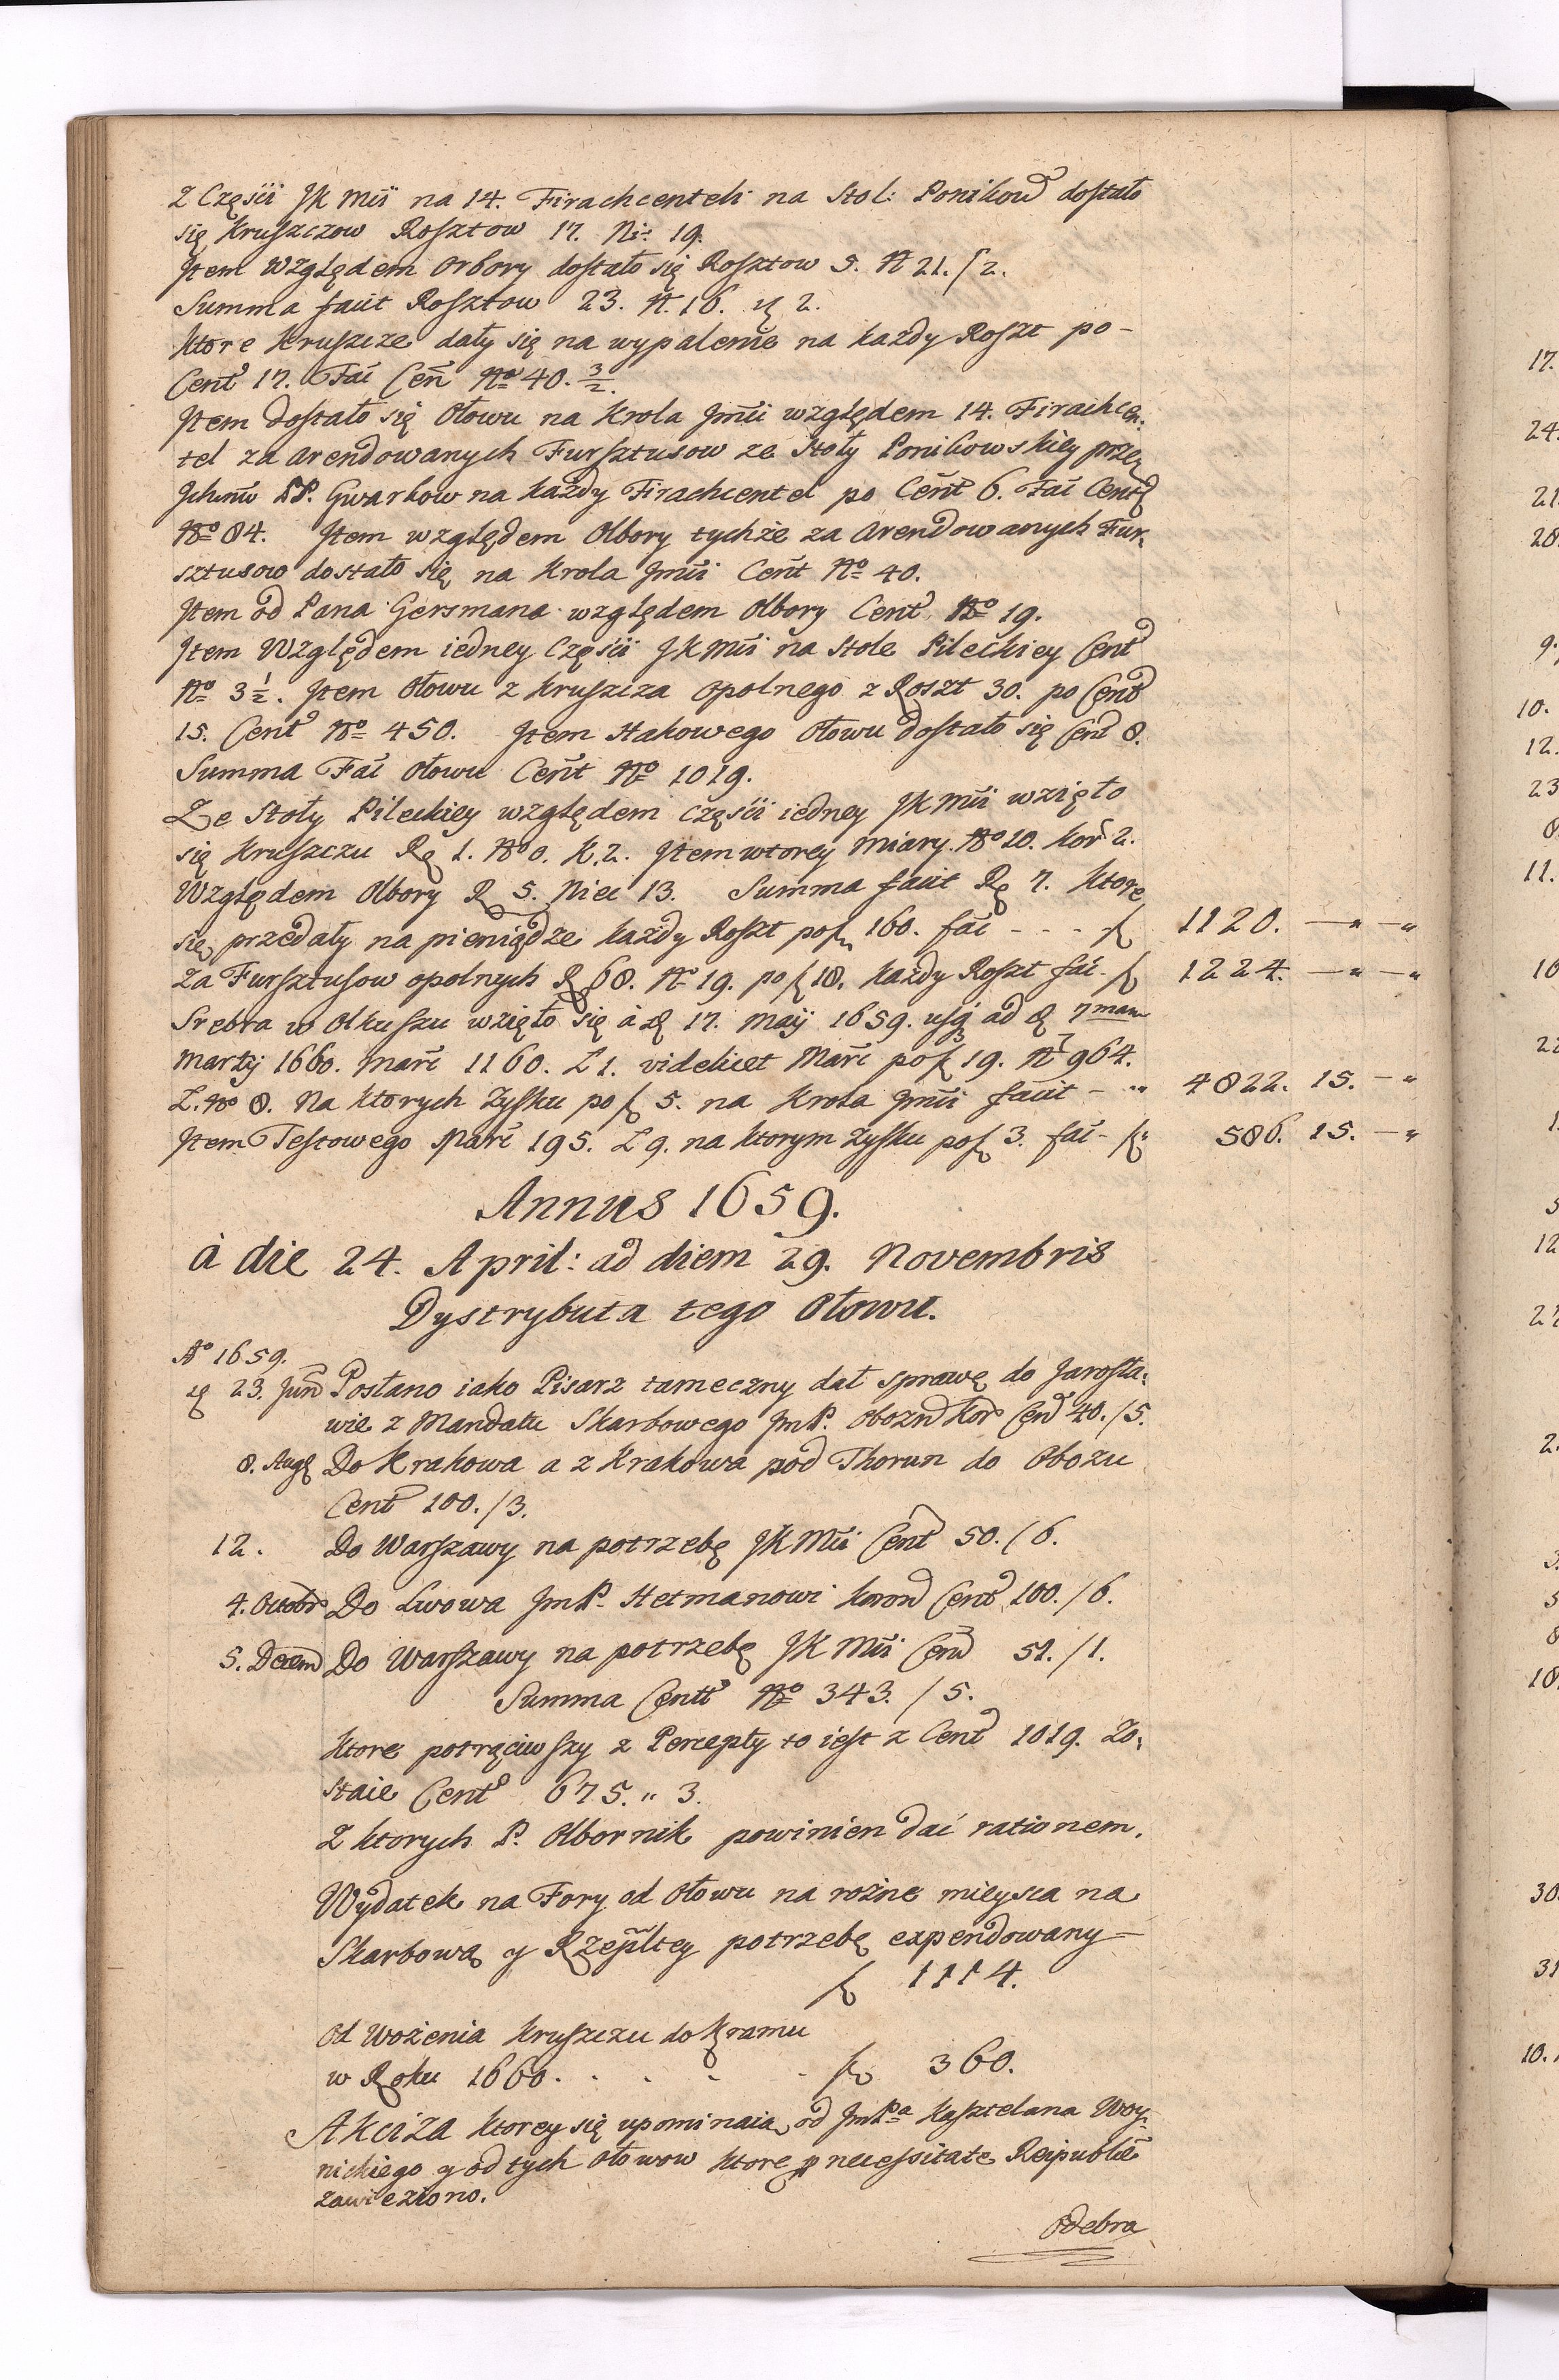 Z Częsci JK Mći na 14. Firachcenteli na Stol: Ponikow dostało
się Kruszczow Rosztow 17. Ni: 19.
Jtem Względem Orbory dostało się Rosztow 5. N 21. /2.
Summa faut Rosztow 23. N. 16. 2.
Ktore Kruszcze dały się na wypalenie na każdy Roszt po-
Cent 17. Faci Cen No 40. 3/2.
Jtem dostało się Ołowu na Krola Jmći względem 14. Firachcen:
tel za arendowanych Fursztusow ze Stoły Ponikowskiey przez
Jchmw PP. Gwarkow na każdy Firachcentel po Cent 6. Faci Cent
No 84. Jtem względem Olbory tychże za arendowanych Fur:
sztusow dostało się na Krola Jmći Cent No 40.
Jtem od Pana Gersmana względem Olbory Cent No 19.
Jtem Względem iedney Częsci JKMći na Stole Pileckiey Cent
No 3 1/2. Jtem Ołowu z Kruszcza opolnego z Roszt 30. po Cent
15. Cent No 450. Jtem Hakowego Ołowu dostało się Cent 8.
Summa Faci Ołowu Cent No 1019.
Ze Stoły Pileckiey względem częsci iedney JK Mći wzięto
się Kruszczu R 1. No 0. K. 2. Jtem wtorey miary. No 20. Kor 2.
Względem Olbory R 5. Niec 13. Summa faut R 7. Ktore
się przedały na pieniądze każdy Roszt po f 160. faci - - - f 1120. — " — "
Za Fursztusow opolnych R 68. N 19. po f 18. każdy Roszt faci - f 1224. — " — "
Srebra w Olkuszu wzięto się à d 17. Maij 1659. usq ad d 7mam
Martij 1660. Marc 1160. Ł 1. videlicet Marc po f 19. N 964.
Ł. No 8. Na ktorych Zysku po f 5. na Krola Jmći faut - " 4822. 15. — "
Jtem Testowego Marc 195. Ł 9. na ktorym zysku po f 3. faci - f 586. 15. — "
Annus 1659.
à die 24. April: ad diem 29. Novembris
Dystrybuta tego Ołowu.
Ao 1659.
d 23. Jun Posłano iako Pisarz tameczny dał sprawę do Jarosła:
wie z Mandatu Skarbowego JmP. Obozn Kor Cent 40. /5.
8. Aug Do Krakowa a z Krakowa pod Thorun do Obozu
Cent 100. /3.
12. Do Warszawy na potrzebę JK Mći Cent 50. /6.
4. Octobr Do Lwowa JmP. Hetmanowi Koron Cent 100. /6.
5. Decem Do Warszawy na potrzebę JK Mći Cent 51. /1.
Summa Centt No 343. /5.
Ktore potrąciwszy z Percepty to iest z Cent 1019. Zo:
staie Cent 675. " 3.
Z ktorych P. Olbornik powinien dać rationem.
Wydatek na Fory od Ołowu na rożne mieysca na
Skarbową y Rzepltey potrzebę expendowany—
f 1114.
Od Wożenia Kruszczu do Kramu
w Roku 1660. . . . . f 360.
Akciza ktorey się upominaią od JmPa Kasztelana Woy:
nickiego y od tych Ołowow ktore p necessitate Reipublcæ
zawieziono.
Odebra